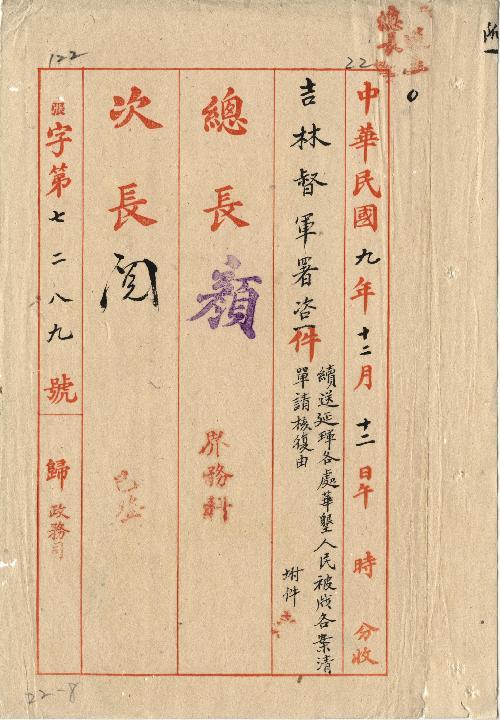 中華民國九年十二月十二日午 時 分收
吉林督軍署咨一件
續送延琿各處華墾人民被戕各案清
單請核復由
附件
總長
顏
界務科
次長
閱
張字第七二八九號
歸政務司
總長
122
22
22-8